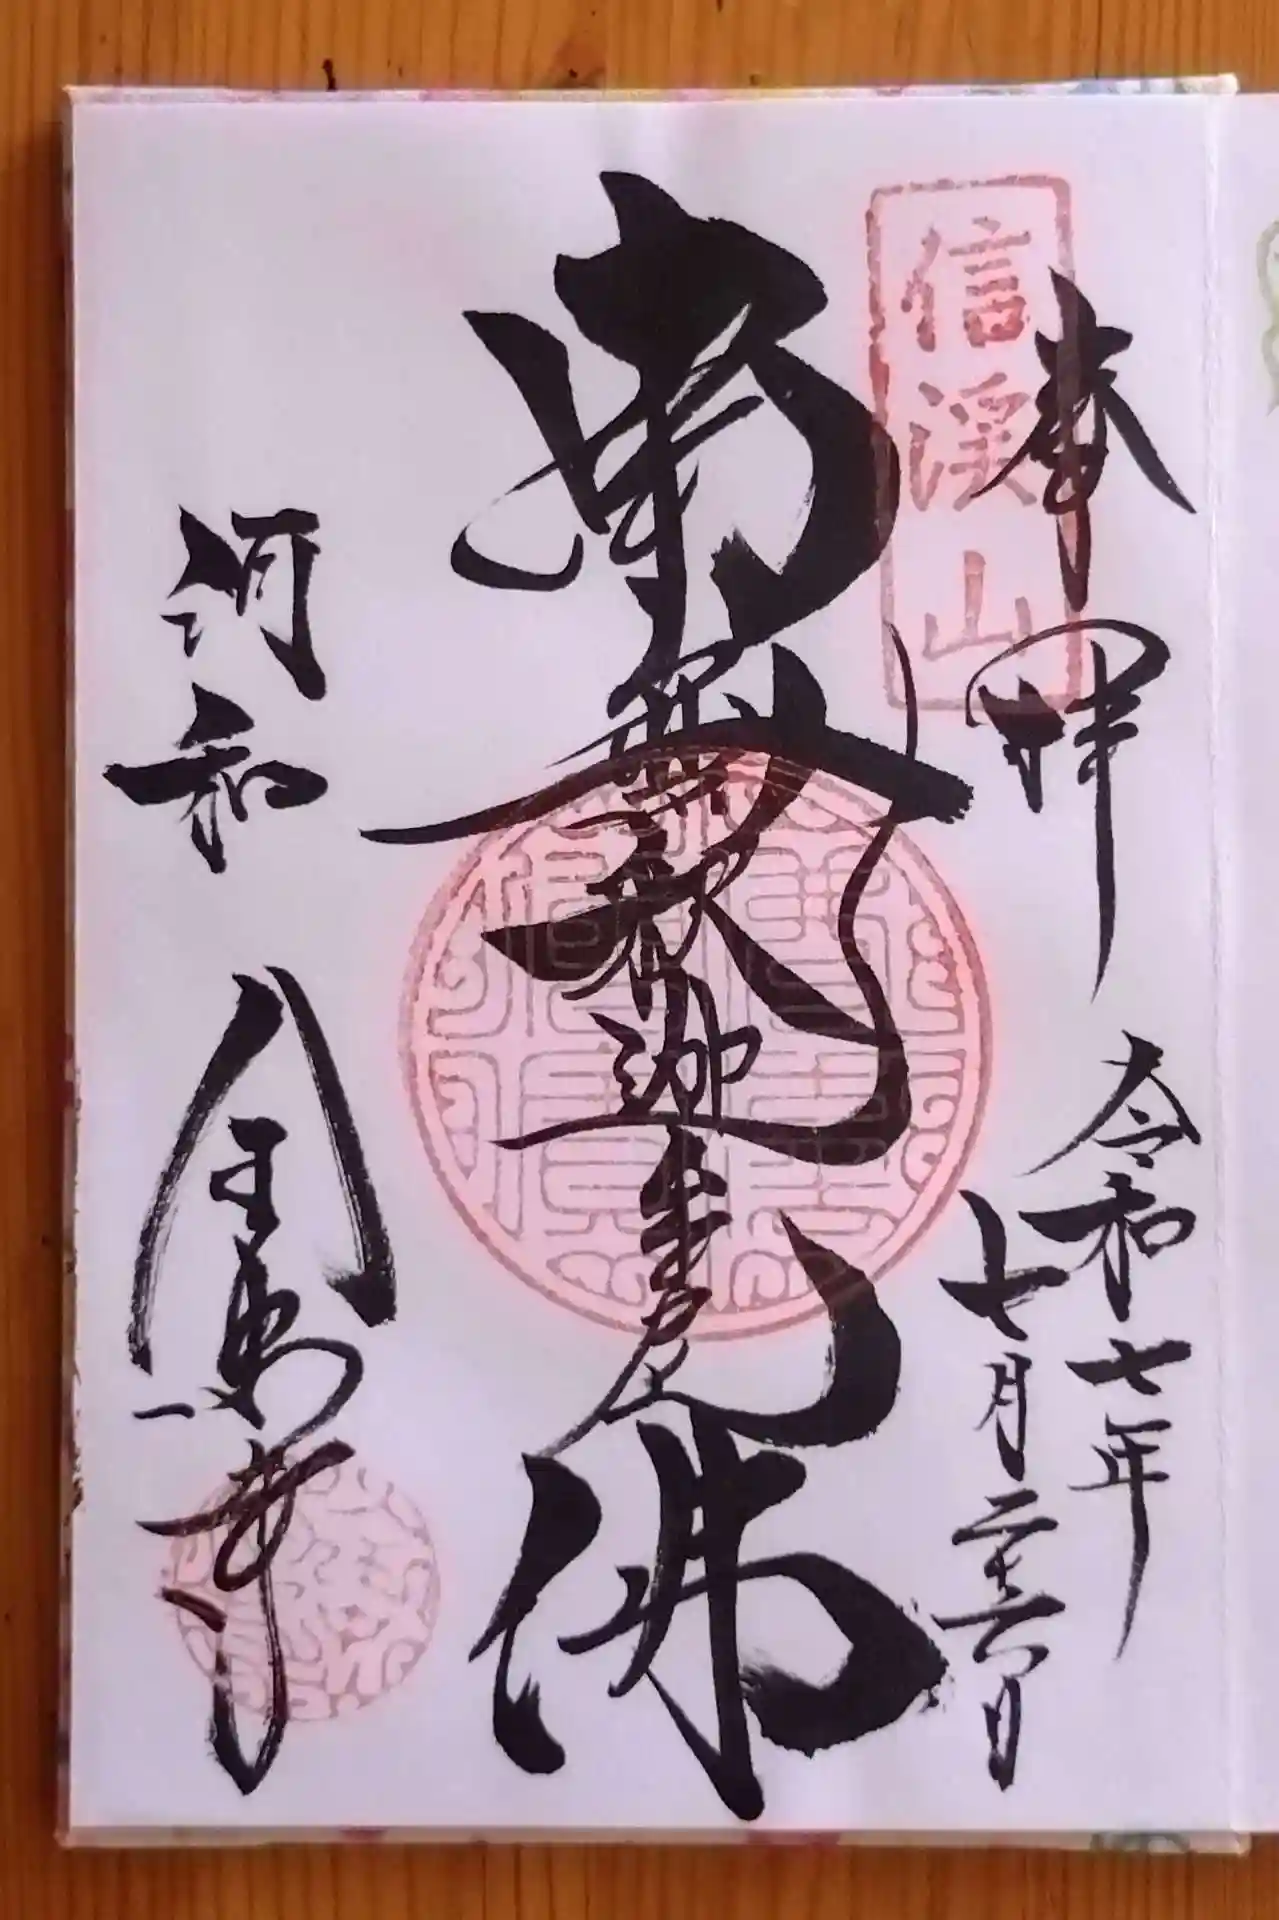 奉拝
信渓山
令和七年
七月二十六日
南無釈迦牟尼佛
河和